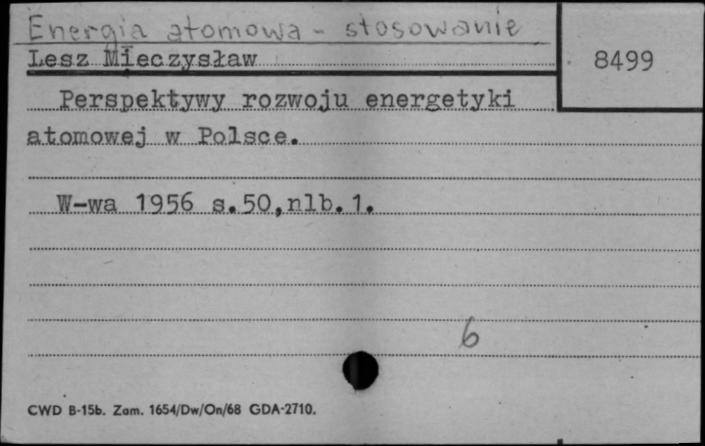 Energia atomowa - stosowanie
Lesz Mieczysław
8499
Perspektywy rozwoju energetyki
atomowej w Polsce.
W-wa 1956 s.50,nlb.1.
6
CWD B-15b. Zam. 1654/Dw/On/68 GDA-2710.